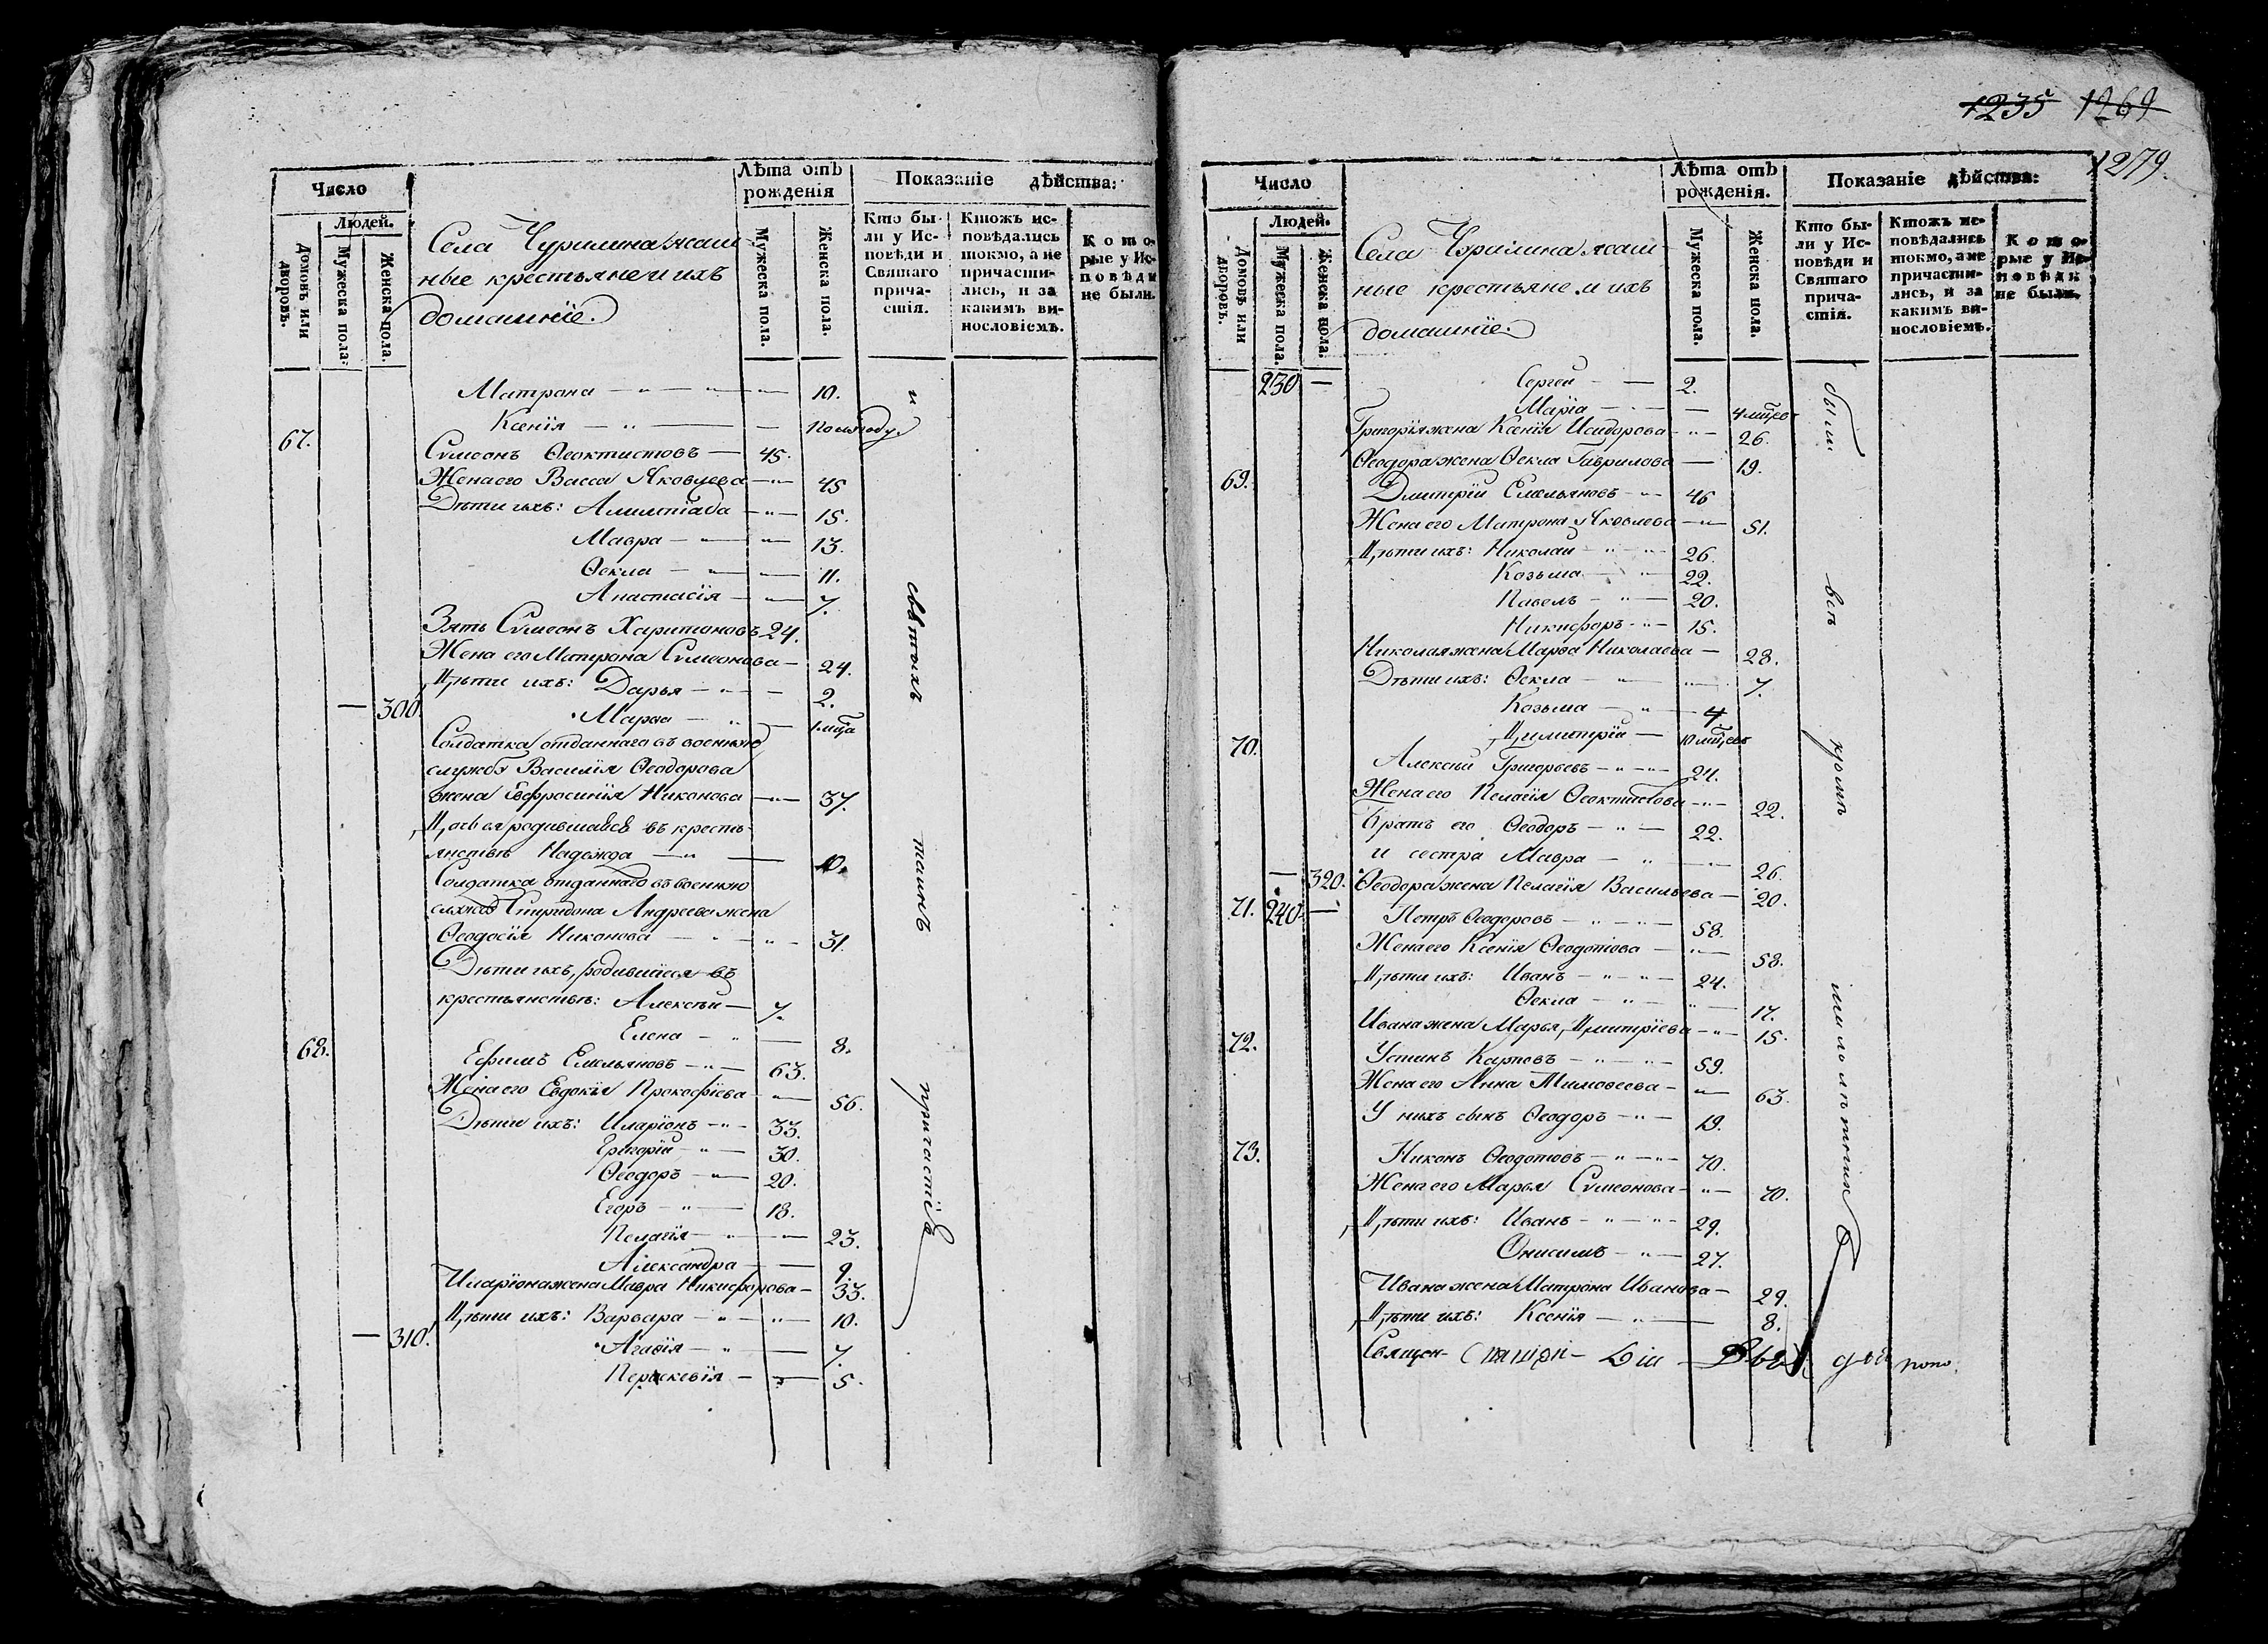 Число
Людей.
Домовъ или дворовъ.
Мужеска пола.
Женска пола.
Села Чурилина яcаш-
ные крестьяне и ихъ
домашнїе.
Лѣта отъ рожденія
Мужеска пола.
Женска пола.
Показаніе дѣйства:
Кто бы-
ли у Ис-
повѣди и
Святаго
прича-
стія.
Ктожъ ис-
повѣдались
токмо, а не
причасти-
лись, и за
какимъ ви-
нословіемъ.
Кото-
рые у Ис-
повѣди
не были.
Матрона 10.
Ксенїя полугоду
67. Сѵмеонъ Ѳеоктистовъ 45.
Жена его Васса Яковлева 45
Дѣти ихъ: Алимпїада 15.
Мавра 13.
Ѳекла 11.
Анастасїя 7.
Зять Сѵмеонъ Харитоновъ 24.
Жена его Матрона Сѵмеонова 24.
Дѣти ихъ: Дарья 2.
— 300. Марѳа 1 мца
Солдатка отданнаго въ военную
службу Василїя Ѳеодорова
жена Евфросинїя Никонова 37.
Дочь ея родившаяся въ кресть-
янствѣ Надежда 10.
Солдатка отданнаго въ военную
службу Спиридона Андреева жена
Ѳеодосїя Никонова 31.
Дѣти ихъ, родившїеся въ
крестьянствѣ: Алексѣй 7.
Елена 8.
68. Ефимъ Емельяновъ 63.
Жена его Евдокїя Прокофїева 56.
Дѣти ихъ: Иларїонъ 33.
Григорїй 30.
Ѳеодоръ 20.
Егоръ 18.
Пелагїя 23.
Александра 9.
Иларїона жена Мавра Никифорова 33.
Дѣти ихъ: Варвара 10.
— 310. Агафїя 7.
Параскевїя 5.
и святыхъ таинъ причастїѣ
1235 1269
1279.
Число
Людей.
Домовъ или дворовъ.
Мужеска пола.
Женска пола.
Села Чурилина яcаш-
ные крестьяне и ихъ
домашнїе.
Лѣта отъ рожденія.
Мужеска пола.
Женска пола.
Показаніе дѣйства:
Кто бы-
ли у Ис-
повѣди и
Святаго
прича-
стія.
Ктожъ ис-
повѣдались
токмо, а не
причасти-
лись, и за
какимъ ви-
нословіемъ.
Кото-
рые у Ис-
повѣди
не были.
230 — Сергей 2.
Марїа 4 мцев
Григорїя жена Ксенїя Исидорова 26.
Ѳеодора жена Ѳекла Гаврилова 19.
69. Дмитрїй Емельяновъ 46
Жена его Матрона Яковлева 51.
Дѣти ихъ: Николай 26
Козьма 22.
Павелъ 20.
Никифоръ 15.
Николая жена Марѳа Николаева 28.
Дѣти ихъ: Ѳекла 7.
Козьма 4
Димитрїй 10 мцев
70. Алексѣй Григорьевъ 24.
Жена его Пелагїя Ѳеоктистова 22.
Братъ его Ѳеодоръ 22.
и сестра Мавра 26.
— 320. Ѳеодора жена Пелагїя Васильева 20.
71. 240 — Петръ Ѳеодоровъ 58.
Жена его Ксенїя Ѳеодотїева 58.
Дѣти ихъ: Иванъ 24.
Ѳекла 17.
Ивана жена Марья Дмитрїева 15.
72. Устинъ Карповъ 59.
Жена его Анна Тимоѳеева 63.
У нихъ сынъ Ѳеодоръ 19.
73. Никонъ Ѳеодотовъ 70.
Жена его Марья Сѵмеонова 70.
Дѣти ихъ: Иванъ 29.
Онисимъ 27.
Ивана жена Матрона Иванова 29.
Дѣти ихъ: Ксенїя 8.
были всѣ кромѣ
Священ-